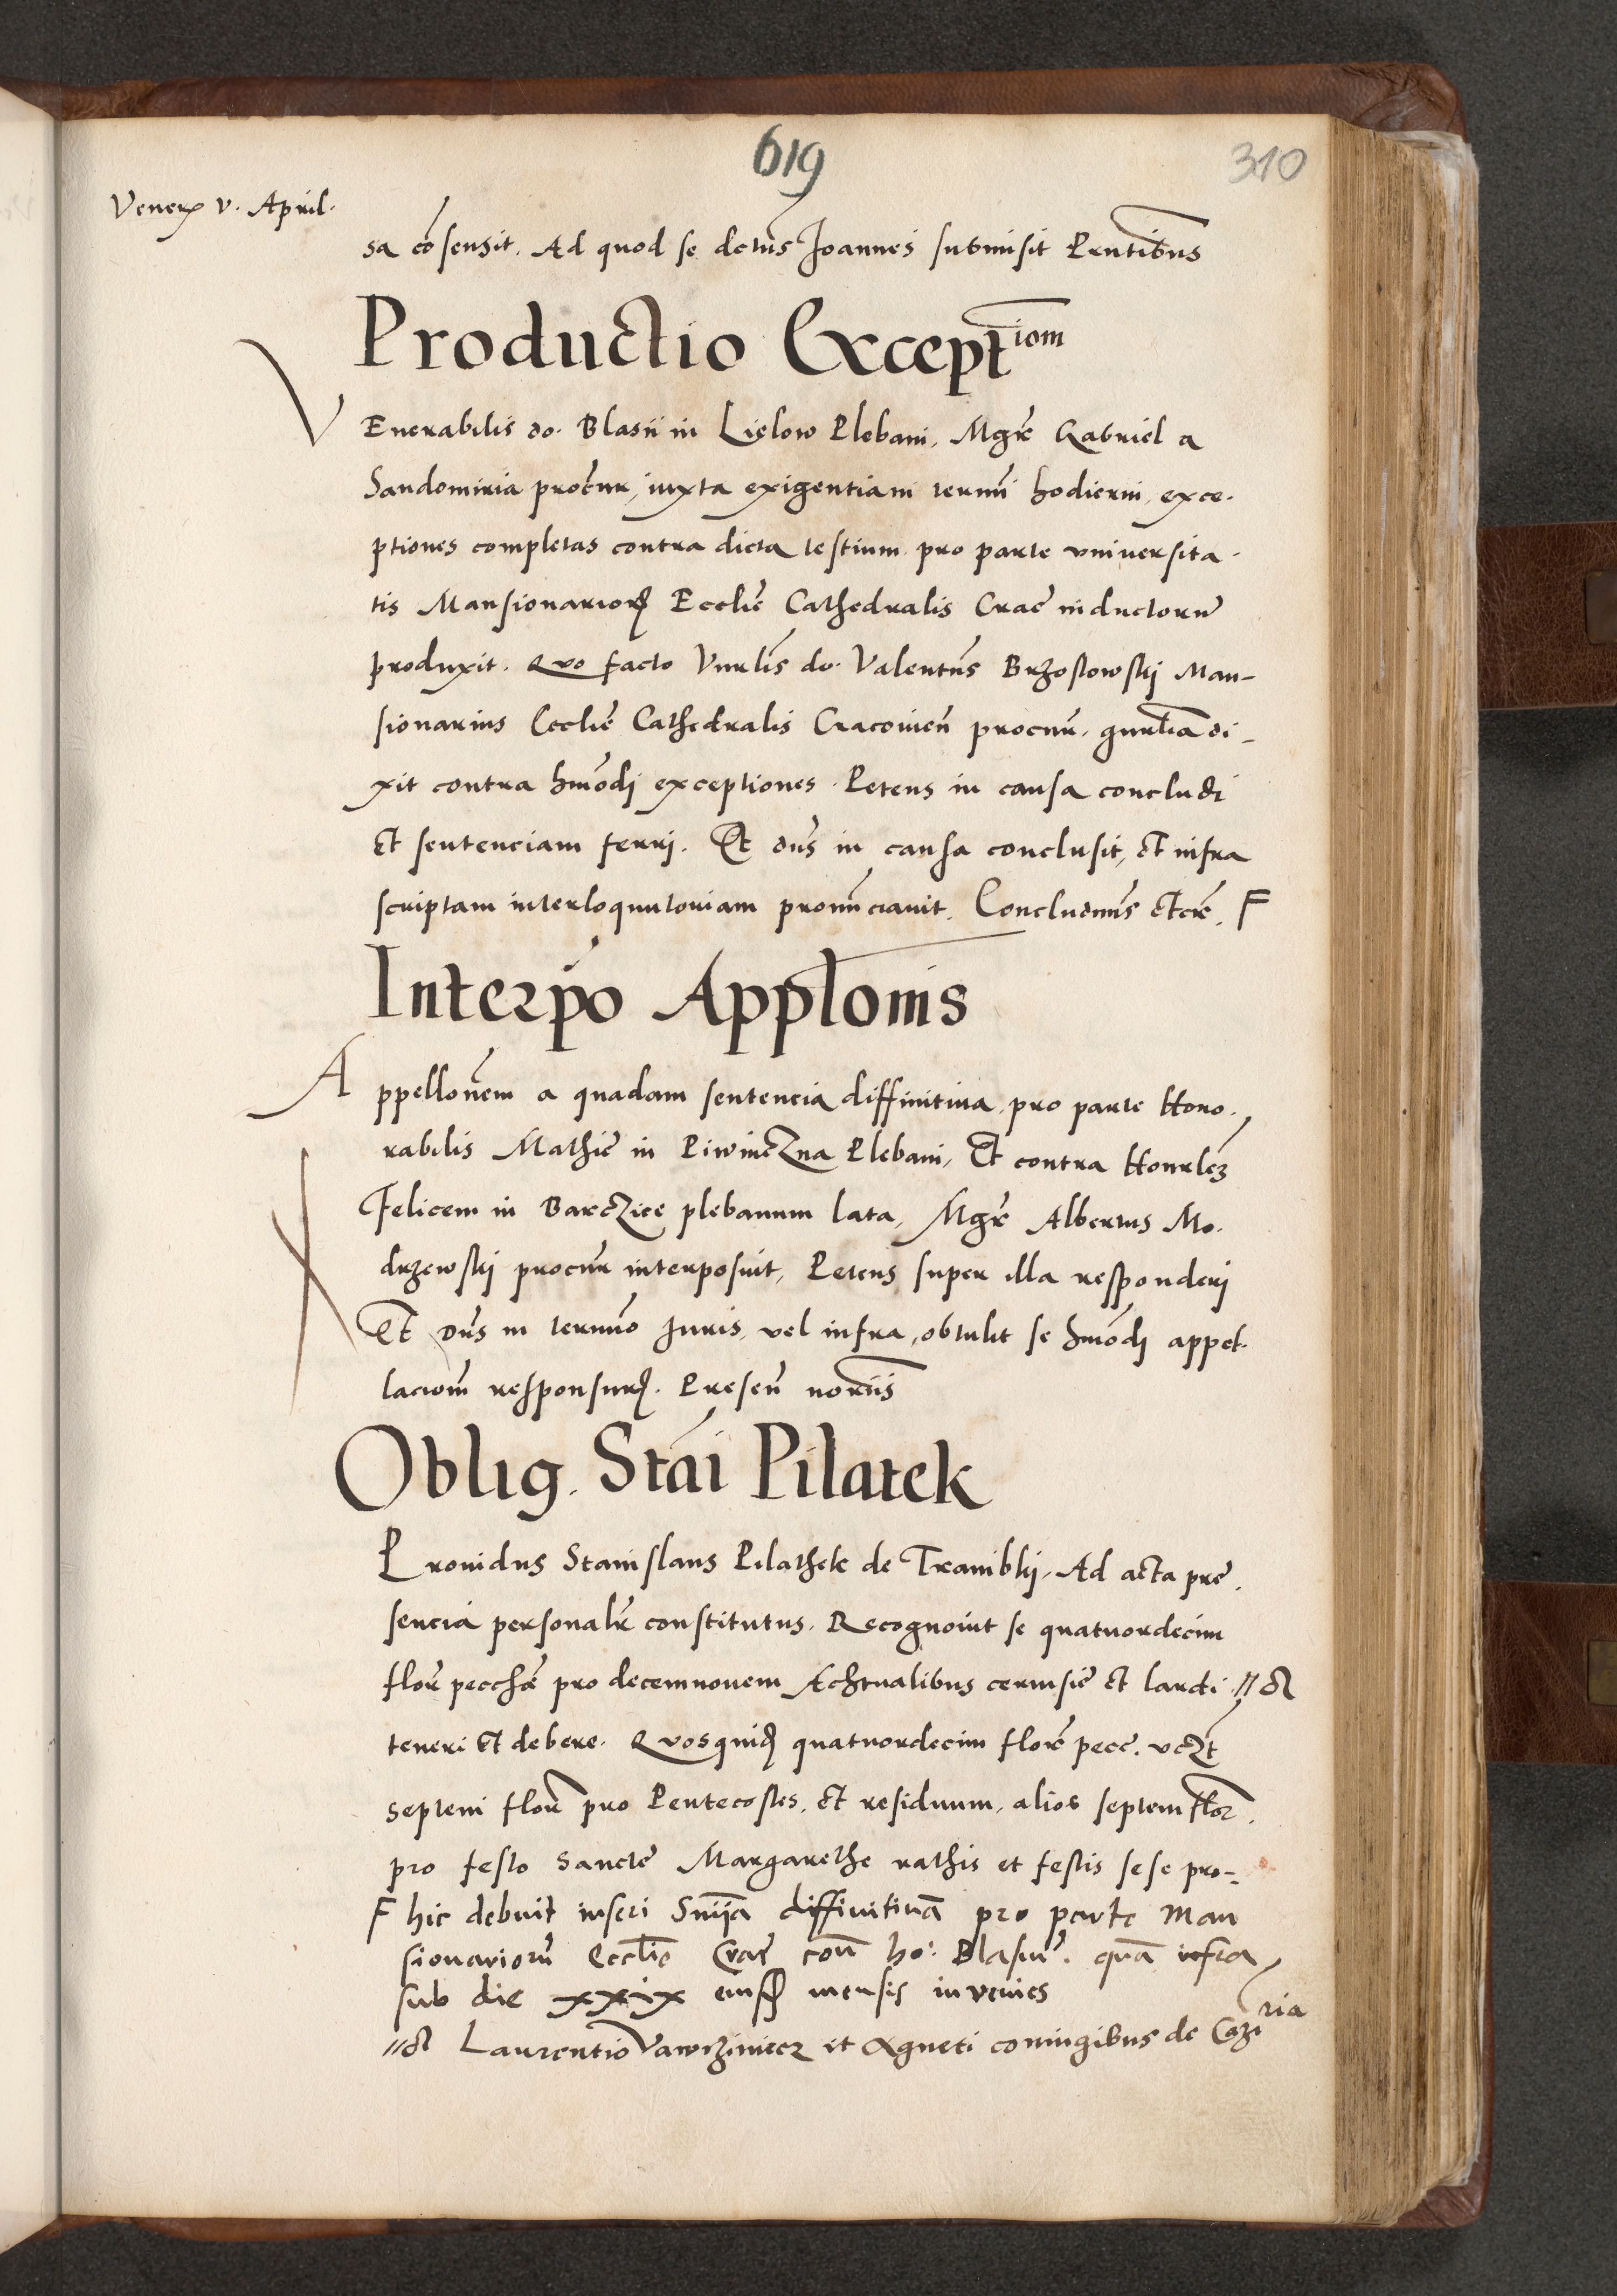 619
310
Veneris v. April.
sa cōsensit. Ad quod se dctus Joannes submisit Prntibus
Productio Exceptiom
VEnerabilis do. Blasii in Lislow Plebani, Mgr̄ Gabriel a
Sandomiria procūr, iuxta exigentiam termi hodierni, exce-
ptiones completas contra dicta testium pro parte vniuersita-
tis Mansionarioꝝ Ecclīe Cathedralis Crac̄ inductorū
produxit. Quo facto Vnrl̄is do. Valentūs Brzostowskj Man-
sionarius Ecclīe Cathedralis Cracouien̄ procūr. gnrl̄ia di-
xit contra hm̄odj exceptiones. Petens in causa concludi
et sentenciam ferri. Et dn̄s in causa conclusit, et infra
scriptam interloquutoriam pronūnciauit. Concludimꝰ etcr̄. F
Interpo Applonis
Appellonēm a quadam sentencia diffinitiua, pro parte Hono-
rabilis Mathie in Piwniczna Plebani, Et contra Honrlēz
Felicem in Barczice plebanum lata, Mgr̄ Albertus Mo-
drzewskj procūr interposuit, Petens super illa responderj
Et dn̄s in termīo Juris, vel infra, obtulit se hm̄odj appel-
laciom̄ responsurꝝ. Presen̄ noriis
Oblig. Stāi Pilatek
Prouidus Stanislaus Pilathek de Tranibkj, Ad acta pre-
sencia personalr̄ constitutus. Recognouit se quatuordecim
flor̄ pecchæ pro decemnouem Achtualibus ceruisie et lardi //
teneri et debere. Quosquidꝫ quatuordecim florē pecc. vcꝫt
septem flor̄ pro Pentecostes, et residuum, alios septem flor̄.
pro festo Sancte Margarethe rathis et festis sese pro-
F hic debuit inseri Sn̄ia diffinitiuā pro parte Man
sionariorū Ecclīe Crac̄ con̄ ho: Blasiū. quā infra
sub die xxix eiusdꝫ mensis invenies
// Laurentio Vawrziniecz et Agneti coniugibus de